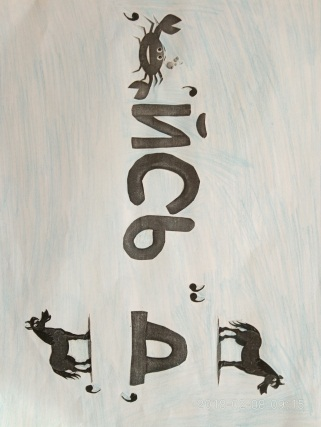 ЙСЬ Д